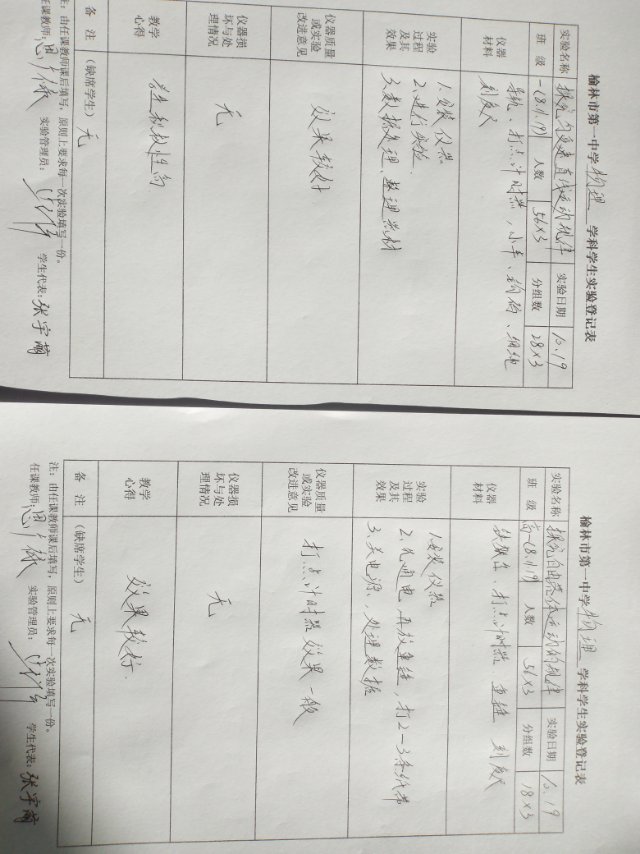 榆林市第一中学 物理 学科学生实验登记表
实验名称 探究匀变速直线运动的规律 实验日期 10.19
班 级 一(8.11.19) 人数 56×3 分组数 28×3
仪器材料 导轨、打点计时器、小车、钩码、细绳
刻度尺
实验过程及其效果 1.安装仪器
2.进行实验.
3.数据处理、整理器材
仪器质量或实验改进意见 效果较好
仪器损坏与处理情况 无
教学心得 学生积极性高
备 注 (缺席学生) 无
注: 由任课教师课后填写, 原则上要求每一次实验填写一份。
任课教师: 实验管理员: 学生代表: 张宇萌
榆林市第一中学 物理 学科学生实验登记表
实验名称 探究自由落体运动的规律 实验日期 10.19
班 级 高一(8.11.19) 人数 56×3 分组数 18×3
仪器材料 铁架台、打点计时器、重锤 刻度尺
实验过程及其效果 1.安装仪器
2.先通电,再放重锤,打2-3条纸带
3.关电源,处理数据
仪器质量或实验改进意见 打点计时器效果一般
仪器损坏与处理情况 无
教学心得 效果较好.
备 注 (缺席学生) 无
注: 由任课教师课后填写, 原则上要求每一次实验填写一份。
任课教师: 实验管理员: 学生代表: 张宇萌